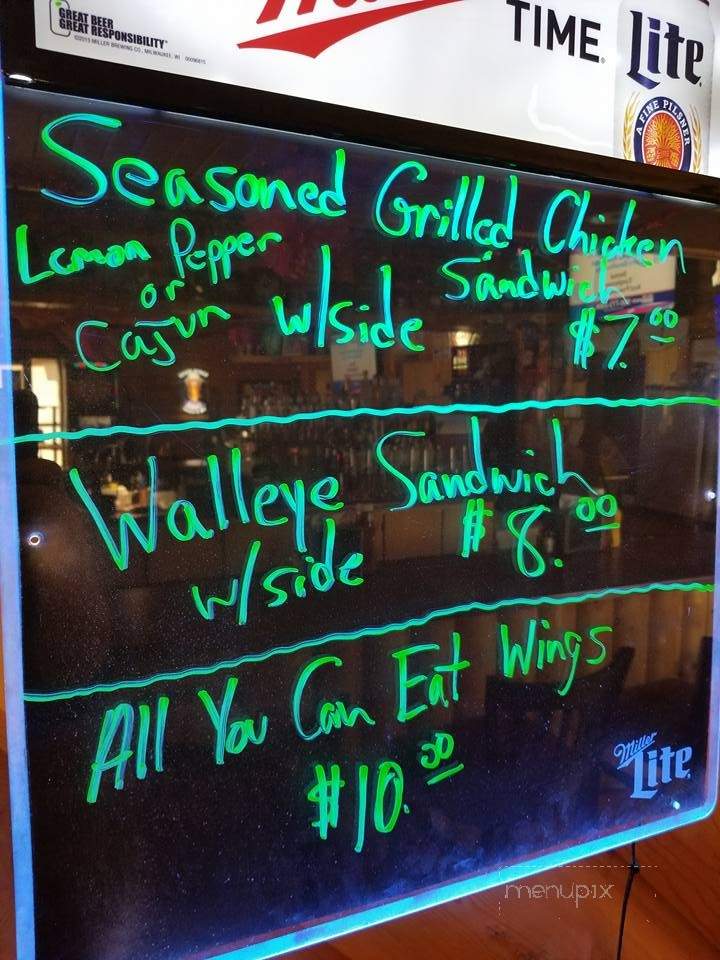 GREAT BEER
GREAT RESPONSIBILITY
TIME.
Lite
A FINE PILSNER
Seasoned Grilled Chicken
Lemon Pepper Sandwich
or
Cajun w/side $7.00
Walleye Sandwich
w/side $8.00
All You Can Eat Wings
$10.00
Miller
Lite
menupix